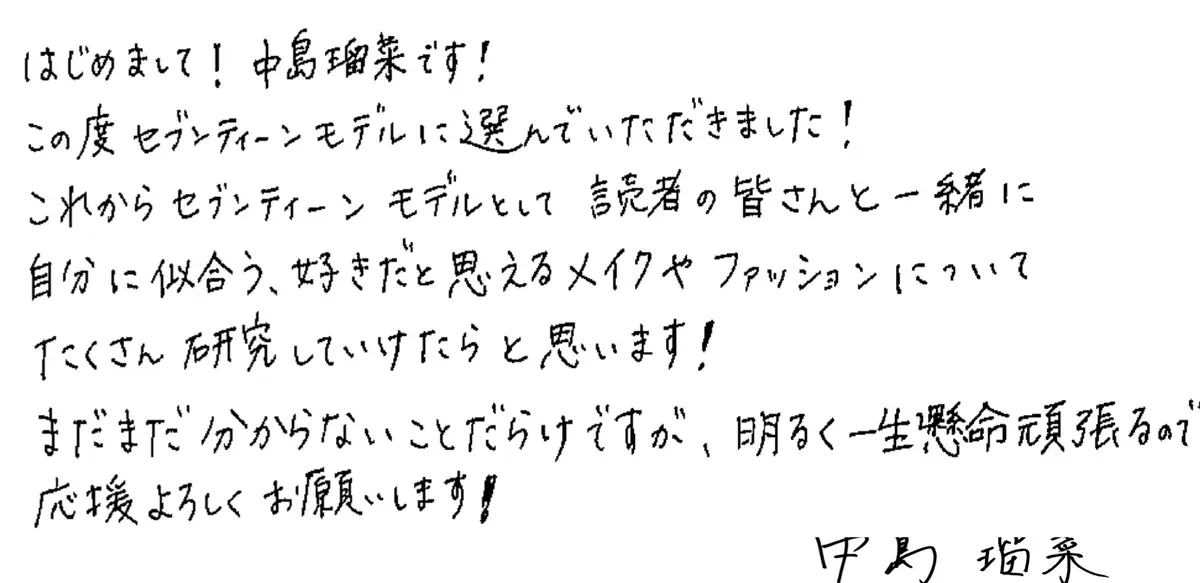 はじめまして！ 中島瑠菜です！
この度 セブンティーンモデルに選んでいただきました！
これから セブンティーン モデルとして 読者の皆さんと一緒に
自分に似合う、好きだと思えるメイクや ファッションについて
たくさん 研究していけたらと思います！
まだまだ分からないことだらけですが、明るく一生懸命頑張るので
応援よろしくお願いします！
中島 瑠菜